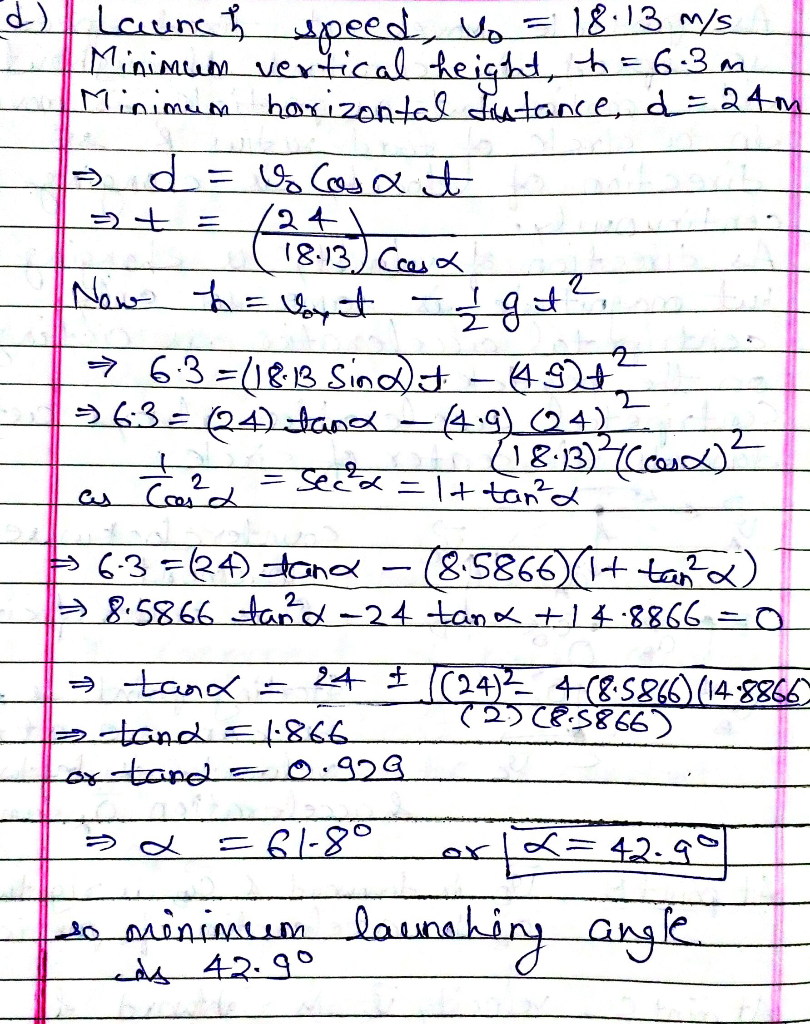 d) Launch speed, v₀ = 18.13 m/s
Minimum vertical height, h = 6.3 m
Minimum horizontal distance, d = 24 m
⇒ d = v₀ Cos α t
⇒ t = (24 / 18.13) Cos α
Now h = v₀y t − 1/2 g t²
⇒ 6.3 = (18.13 Sin α) t − (4.9) t²
⇒ 6.3 = (24) tan α − (4.9) (24)² / (18.13)² (cos α)²
as 1 / Cos² α = Sec² α = 1 + tan² α
⇒ 6.3 = (24) tan α − (8.5866) (1 + tan² α)
⇒ 8.5866 tan² α − 24 tan α + 14.8866 = 0
⇒ tan α = 24 ± √(24)² − 4 (8.5866) (14.8866) / (2) (8.5866)
⇒ tan α = 1.866
or tan α = 0.929
⇒ α = 61.8° or α = 42.9°
so minimum launching angle
is 42.9°